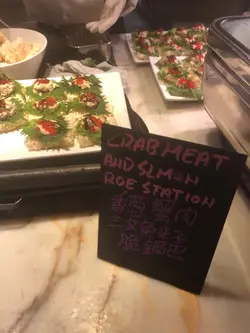 CRABMEAT
AND SLMON
ROE STATION
香蔥蟹肉
三文魚子
脆鍋巴